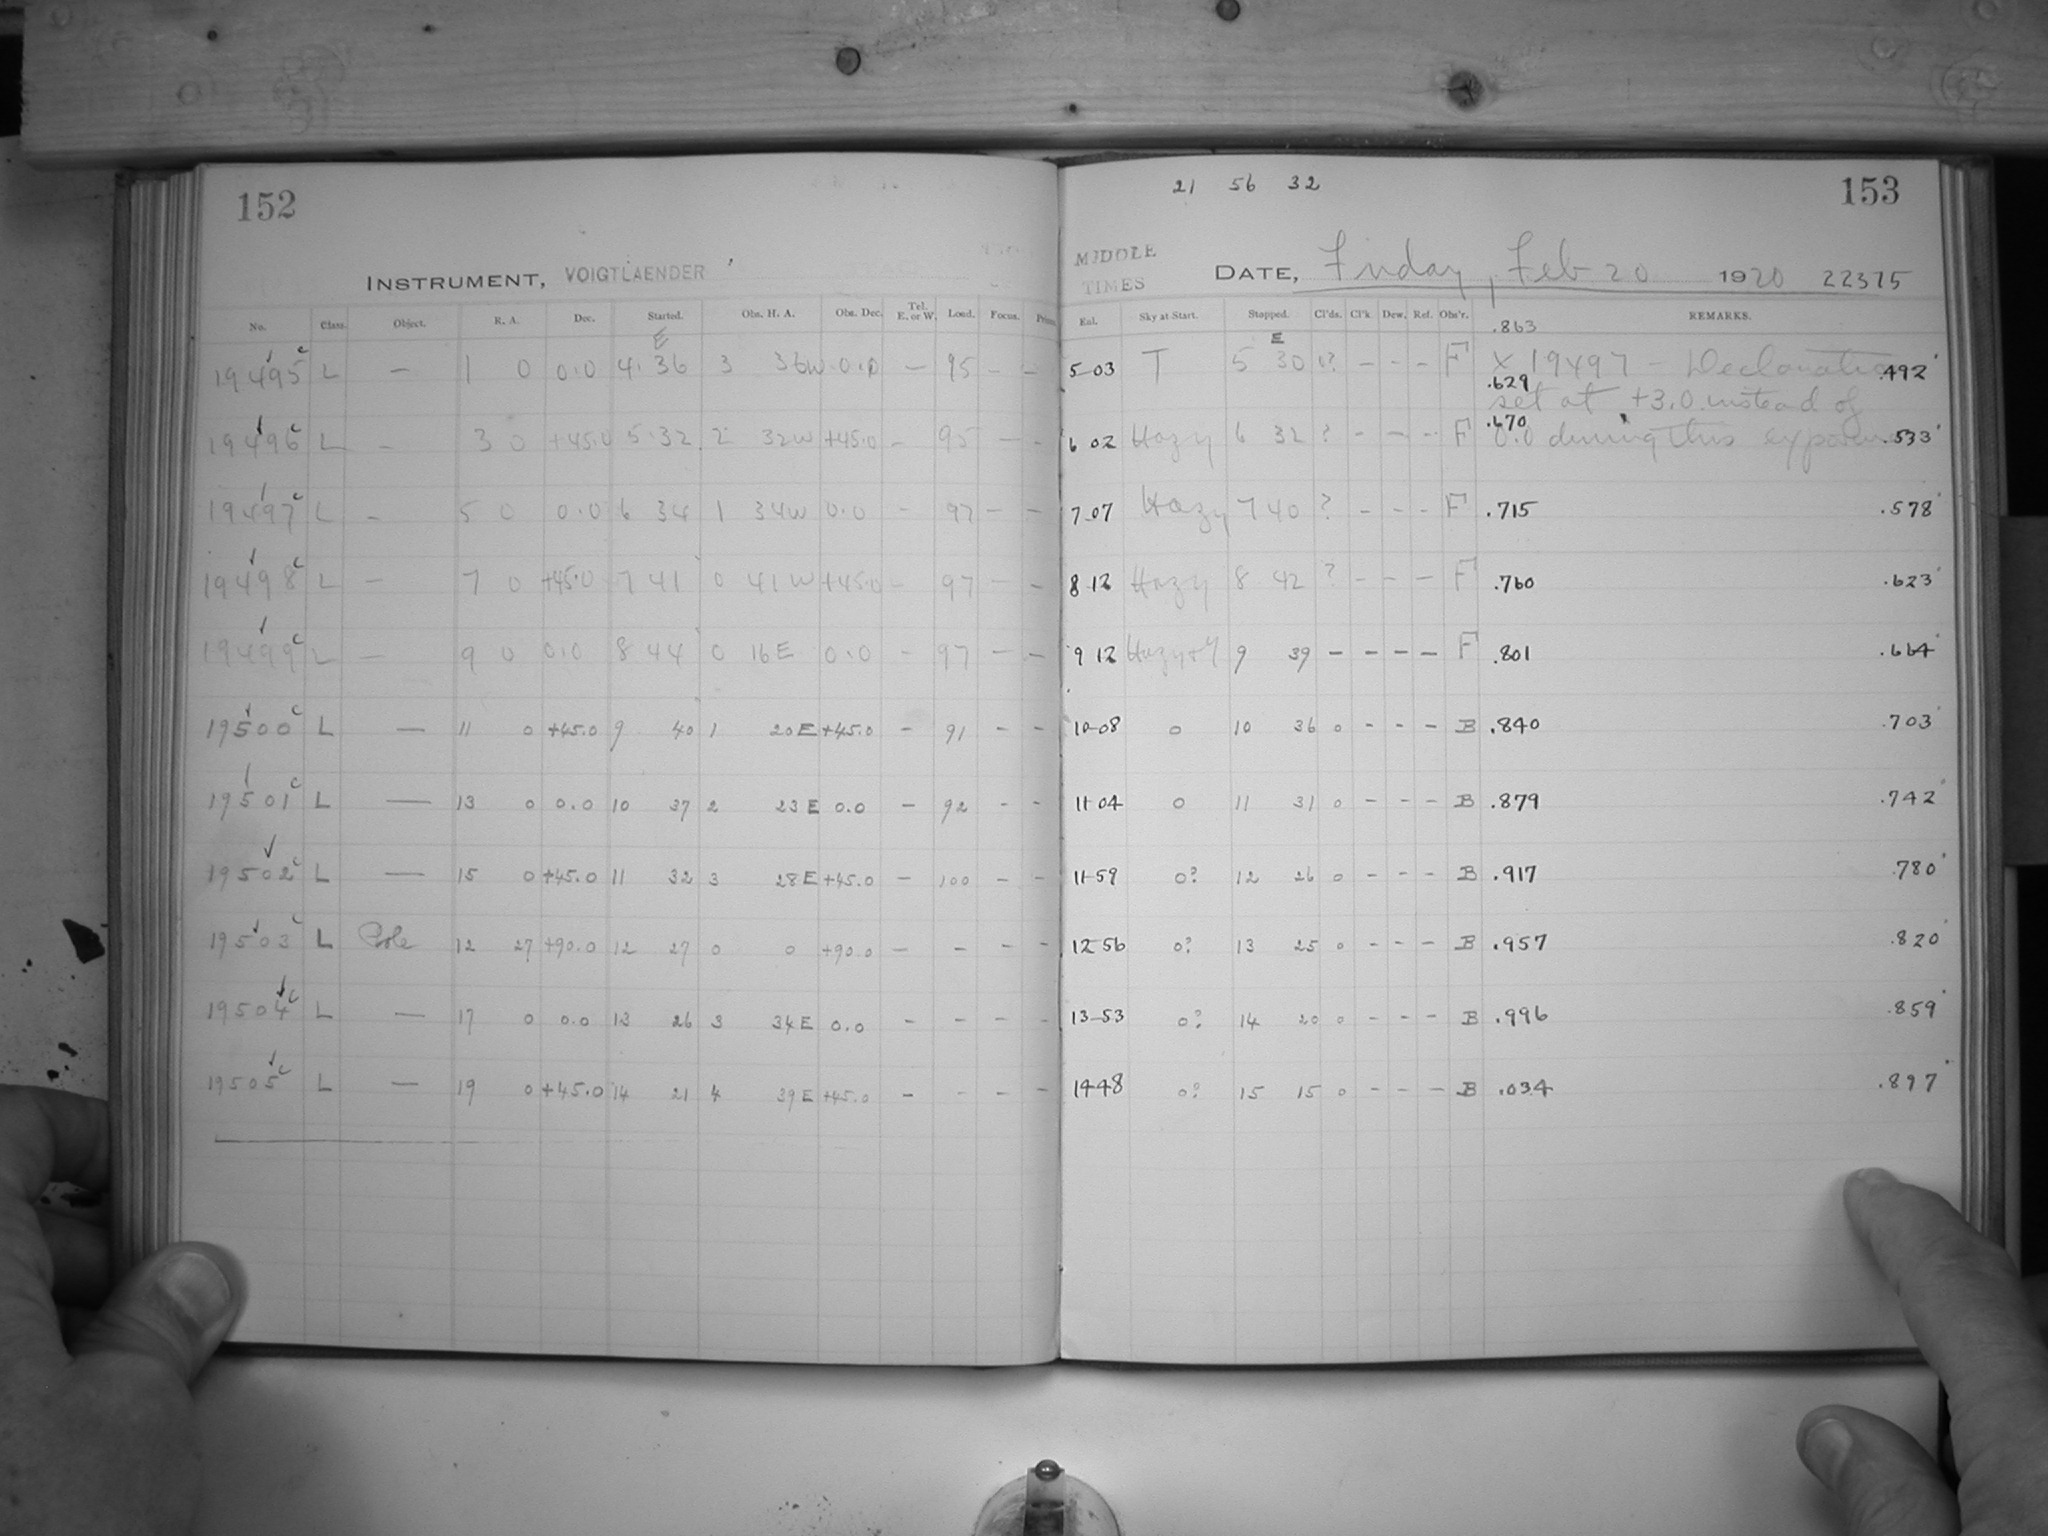 152
INSTRUMENT, VOIGTLAENDER
No. Class. Object. R. A. Dec. Started. Obs. H. A. Obs. Dec. Tel. E. or W. Load. Focus.
E
19495 L — 1 0 0.0 4.36 3 36W 0.0 — 95 — —
19496 L — 3 0 +45.0 5.32 2 32W +45.0 — 95 — —
19497 L — 5 0 0.0 6 34 1 34W 0.0 — 97 — —
19498 L — 7 0 +45.0 7 41 0 41W +45.0 — 97 — —
19499 L — 9 0 0.0 8 44 0 16E 0.0 — 97 — —
19500 L — 11 0 +45.0 9 40 1 20E +45.0 — 91 - -
19501 L — 13 0 0.0 10 37 2 23E 0.0 — 92 - -
19502 L — 15 0 +45.0 11 32 3 28E +45.0 — 100 - -
19503 L Pole 12 27 +90.0 12 27 0 0 +90.0 — - - -
19504 L — 17 0 0.0 13 26 3 34E 0.0 - - - -
19505 L — 19 0 +45.0 14 21 4 39E +45.0 - - - -
21 56 32
153
MIDDLE TIMES
DATE, Friday, Feb 20 1920 22375
Sky at Start. Stopped. Cl'ds. Cl'k Dew. Ref. Obs'r. REMARKS.
.863
E
5-03 T 5 30 ? - - - F X 19497 — Declination .492
.629
set at +3.0 instead of
.670
6 02 Hazy 6 32 ? - - - F 0.0 during this exposure .533
7-07 Hazy 7 40 ? - - - F .715 .578
8-12 Hazy 8 42 ? - - - F .760 .623
9 12 Hazy 9 39 - - - - F .801 .664
10-08 0 10 36 0 - - - B .840 .703
11-04 0 11 31 0 - - - B .879 .742
11-59 0? 12 26 0 - - - B .917 .780
12-56 0? 13 25 0 - - - B .957 .820
13-53 0? 14 20 0 - - - B .996 .859
14-48 0? 15 15 0 - - - B .034 .897